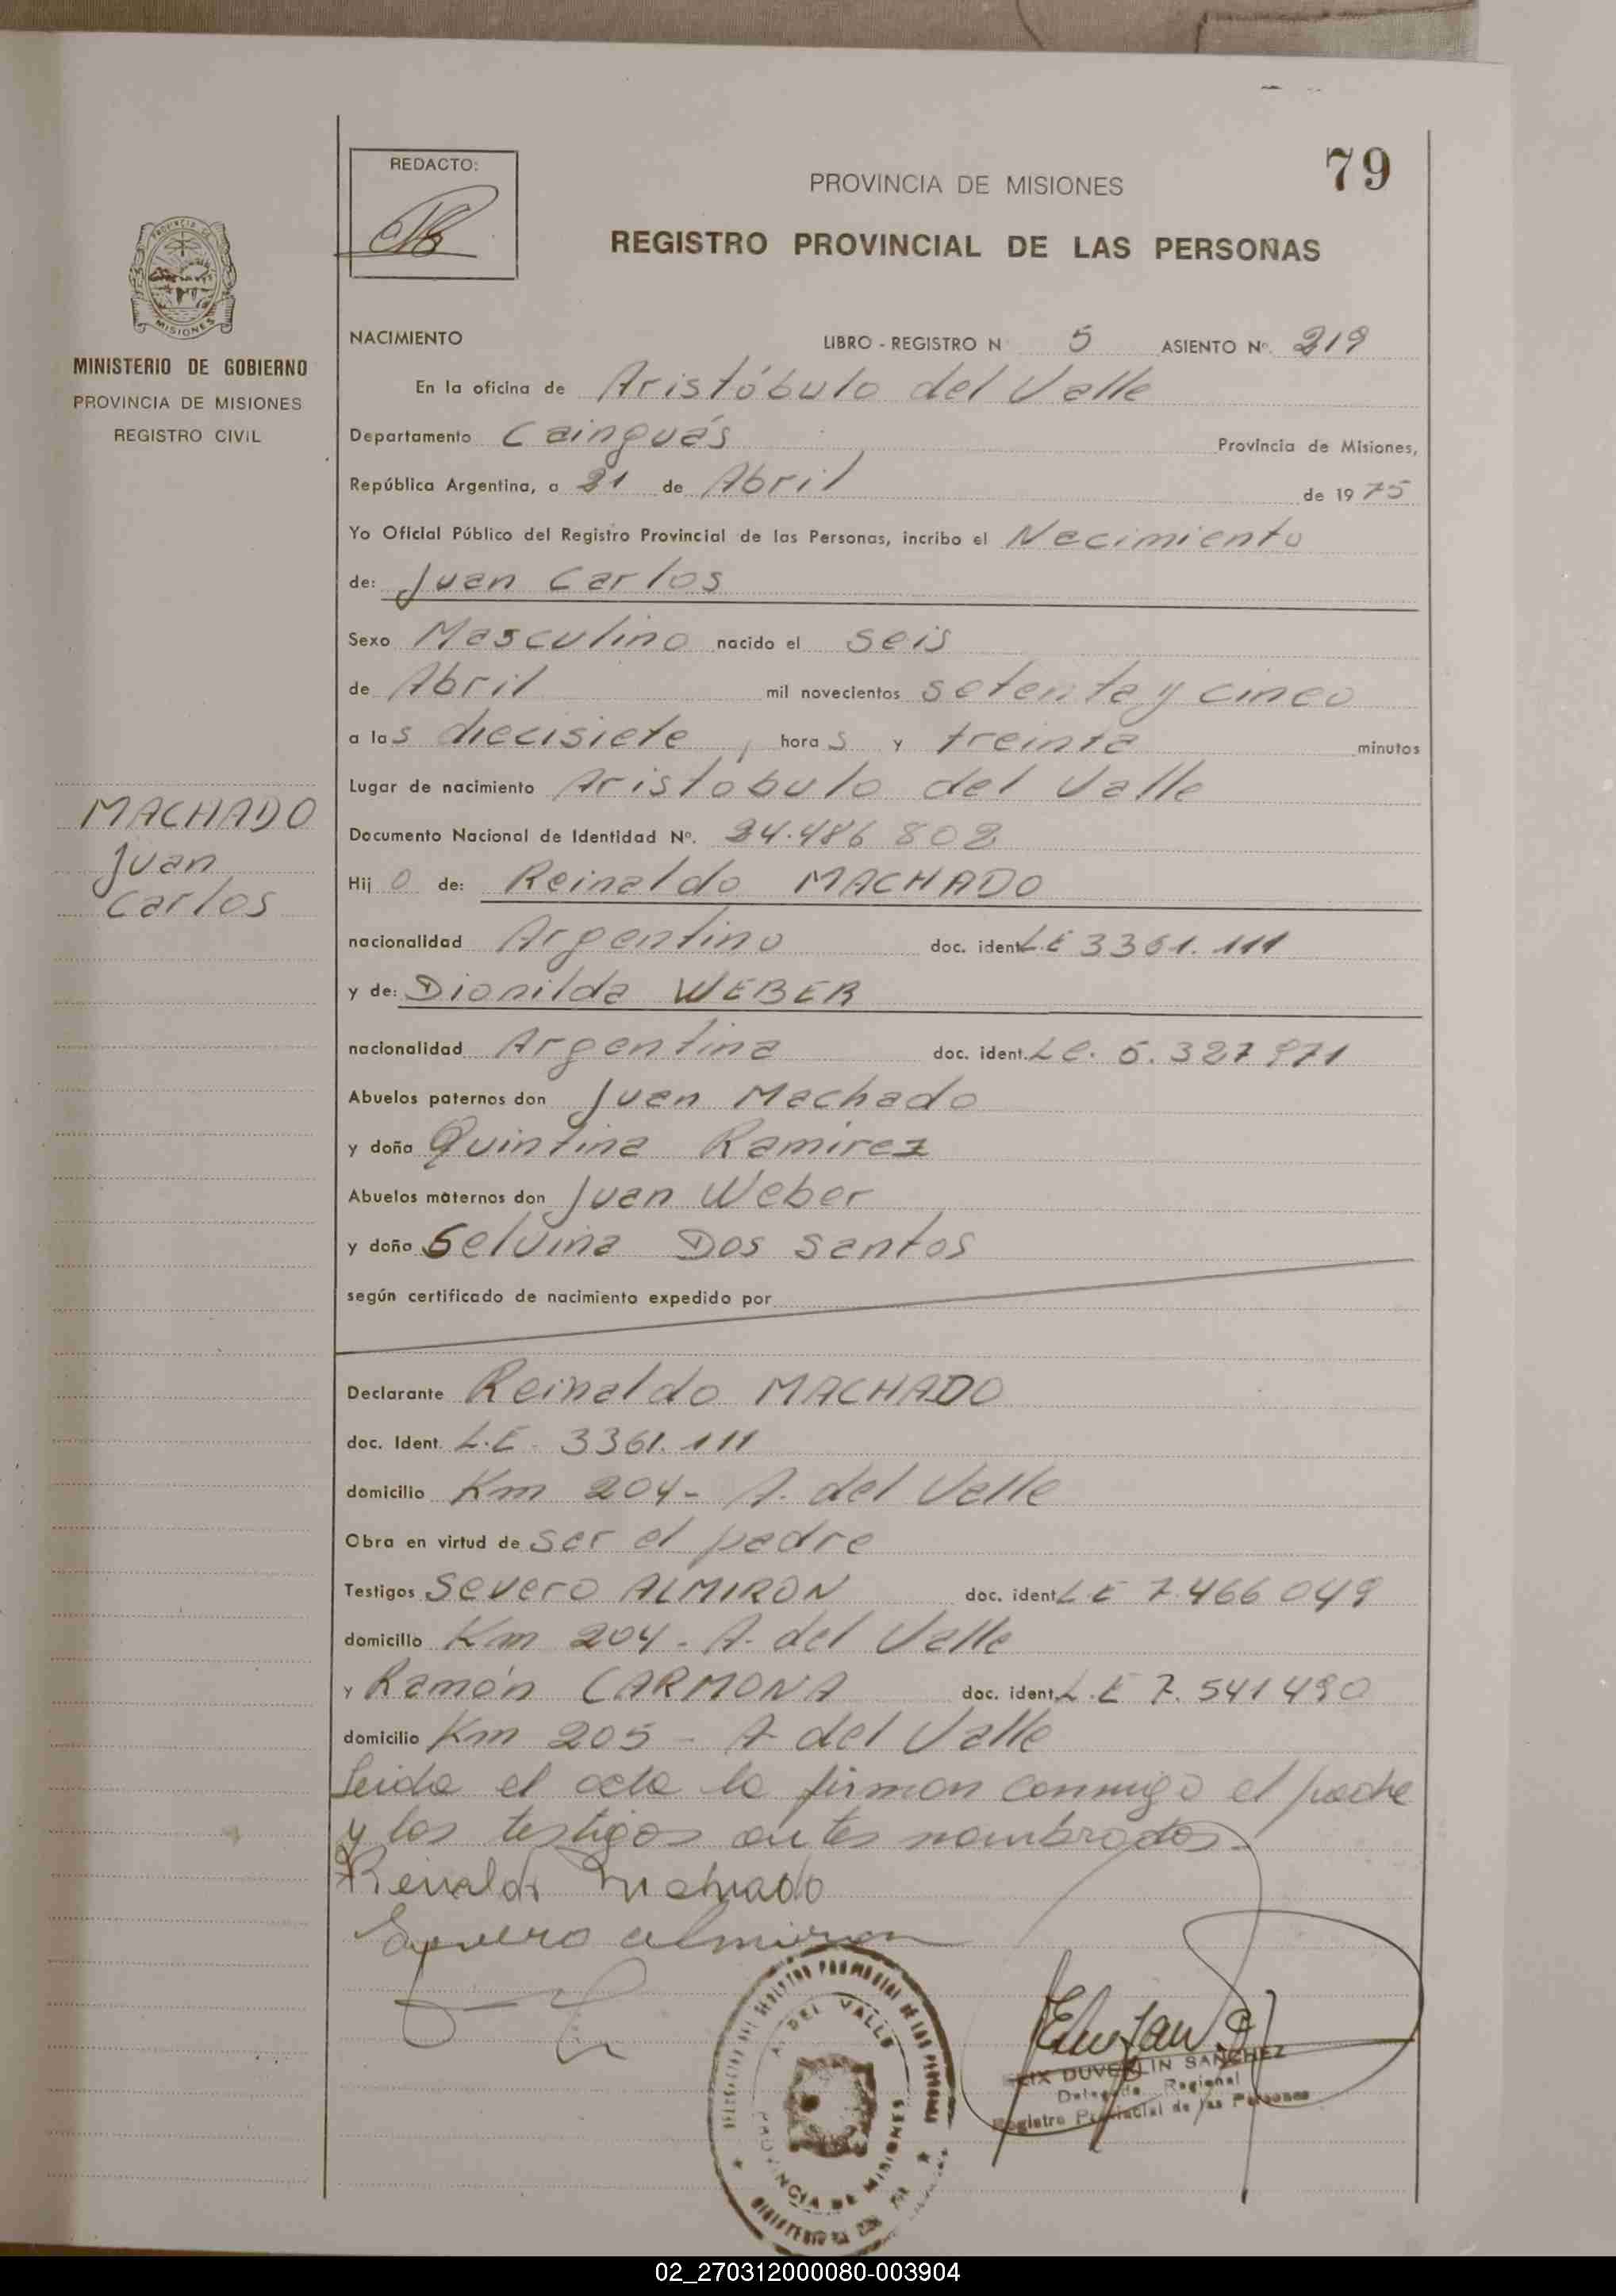 79
REDACTO:
PROVINCIA DE MISIONES
REGISTRO PROVINCIAL DE LAS PERSONAS
PROVINCIA DE
MISIONES
MINISTERIO DE GOBIERNO
PROVINCIA DE MISIONES
REGISTRO CIVIL
NACIMIENTO LIBRO - REGISTRO N 5 ASIENTO Nº. 219
En la oficina de Aristóbulo del Valle
Departamento Cainguás Provincia de Misiones,
República Argentina, a 21 de Abril de 1975
Yo Oficial Público del Registro Provincial de las Personas, incribo el Nacimiento
de: Juan Carlos
Sexo Masculino nacido el seis
de Abril mil novecientos setenta y cinco
a las diecisiete, horas y treinta minutos
Lugar de nacimiento Aristobulo del Valle
MACHADO
Juan
Carlos
Documento Nacional de Identidad Nº. 24.486 802
Hijo de: Reinaldo MACHADO
nacionalidad Argentino doc. ident. L.E 3361.111
y de: Dionilda WEBER
nacionalidad Argentina doc. ident. L.C. 5.327 971
Abuelos paternos don Juan Machado
y doña Quintina Ramirez
Abuelos maternos don Juan Weber
y doña Selvina Dos Santos
según certificado de nacimiento expedido por
Declarante Reinaldo MACHADO
doc. Ident. L.E. 3361.111
domicilio Km 204- A. del Valle
Obra en virtud de ser el padre
Testigos Severo ALMIRON doc. ident. L E 7.466 049
domicilio Km 204 - A. del Valle
y Ramón CARMONA doc. ident. L.E 7. 541 490
domicilio Km 205 - A del Valle
Leida el acta la firman conmigo el padre
y los testigos antes nombrados.
Reinaldo Machado
Severo almiron
A. DEL VALLE
PROVINCIA DE MISIONES
DUVERLIN SANCHEZ
Delegado Regional
Registro Provincial de las Personas
02_270312000080-003904